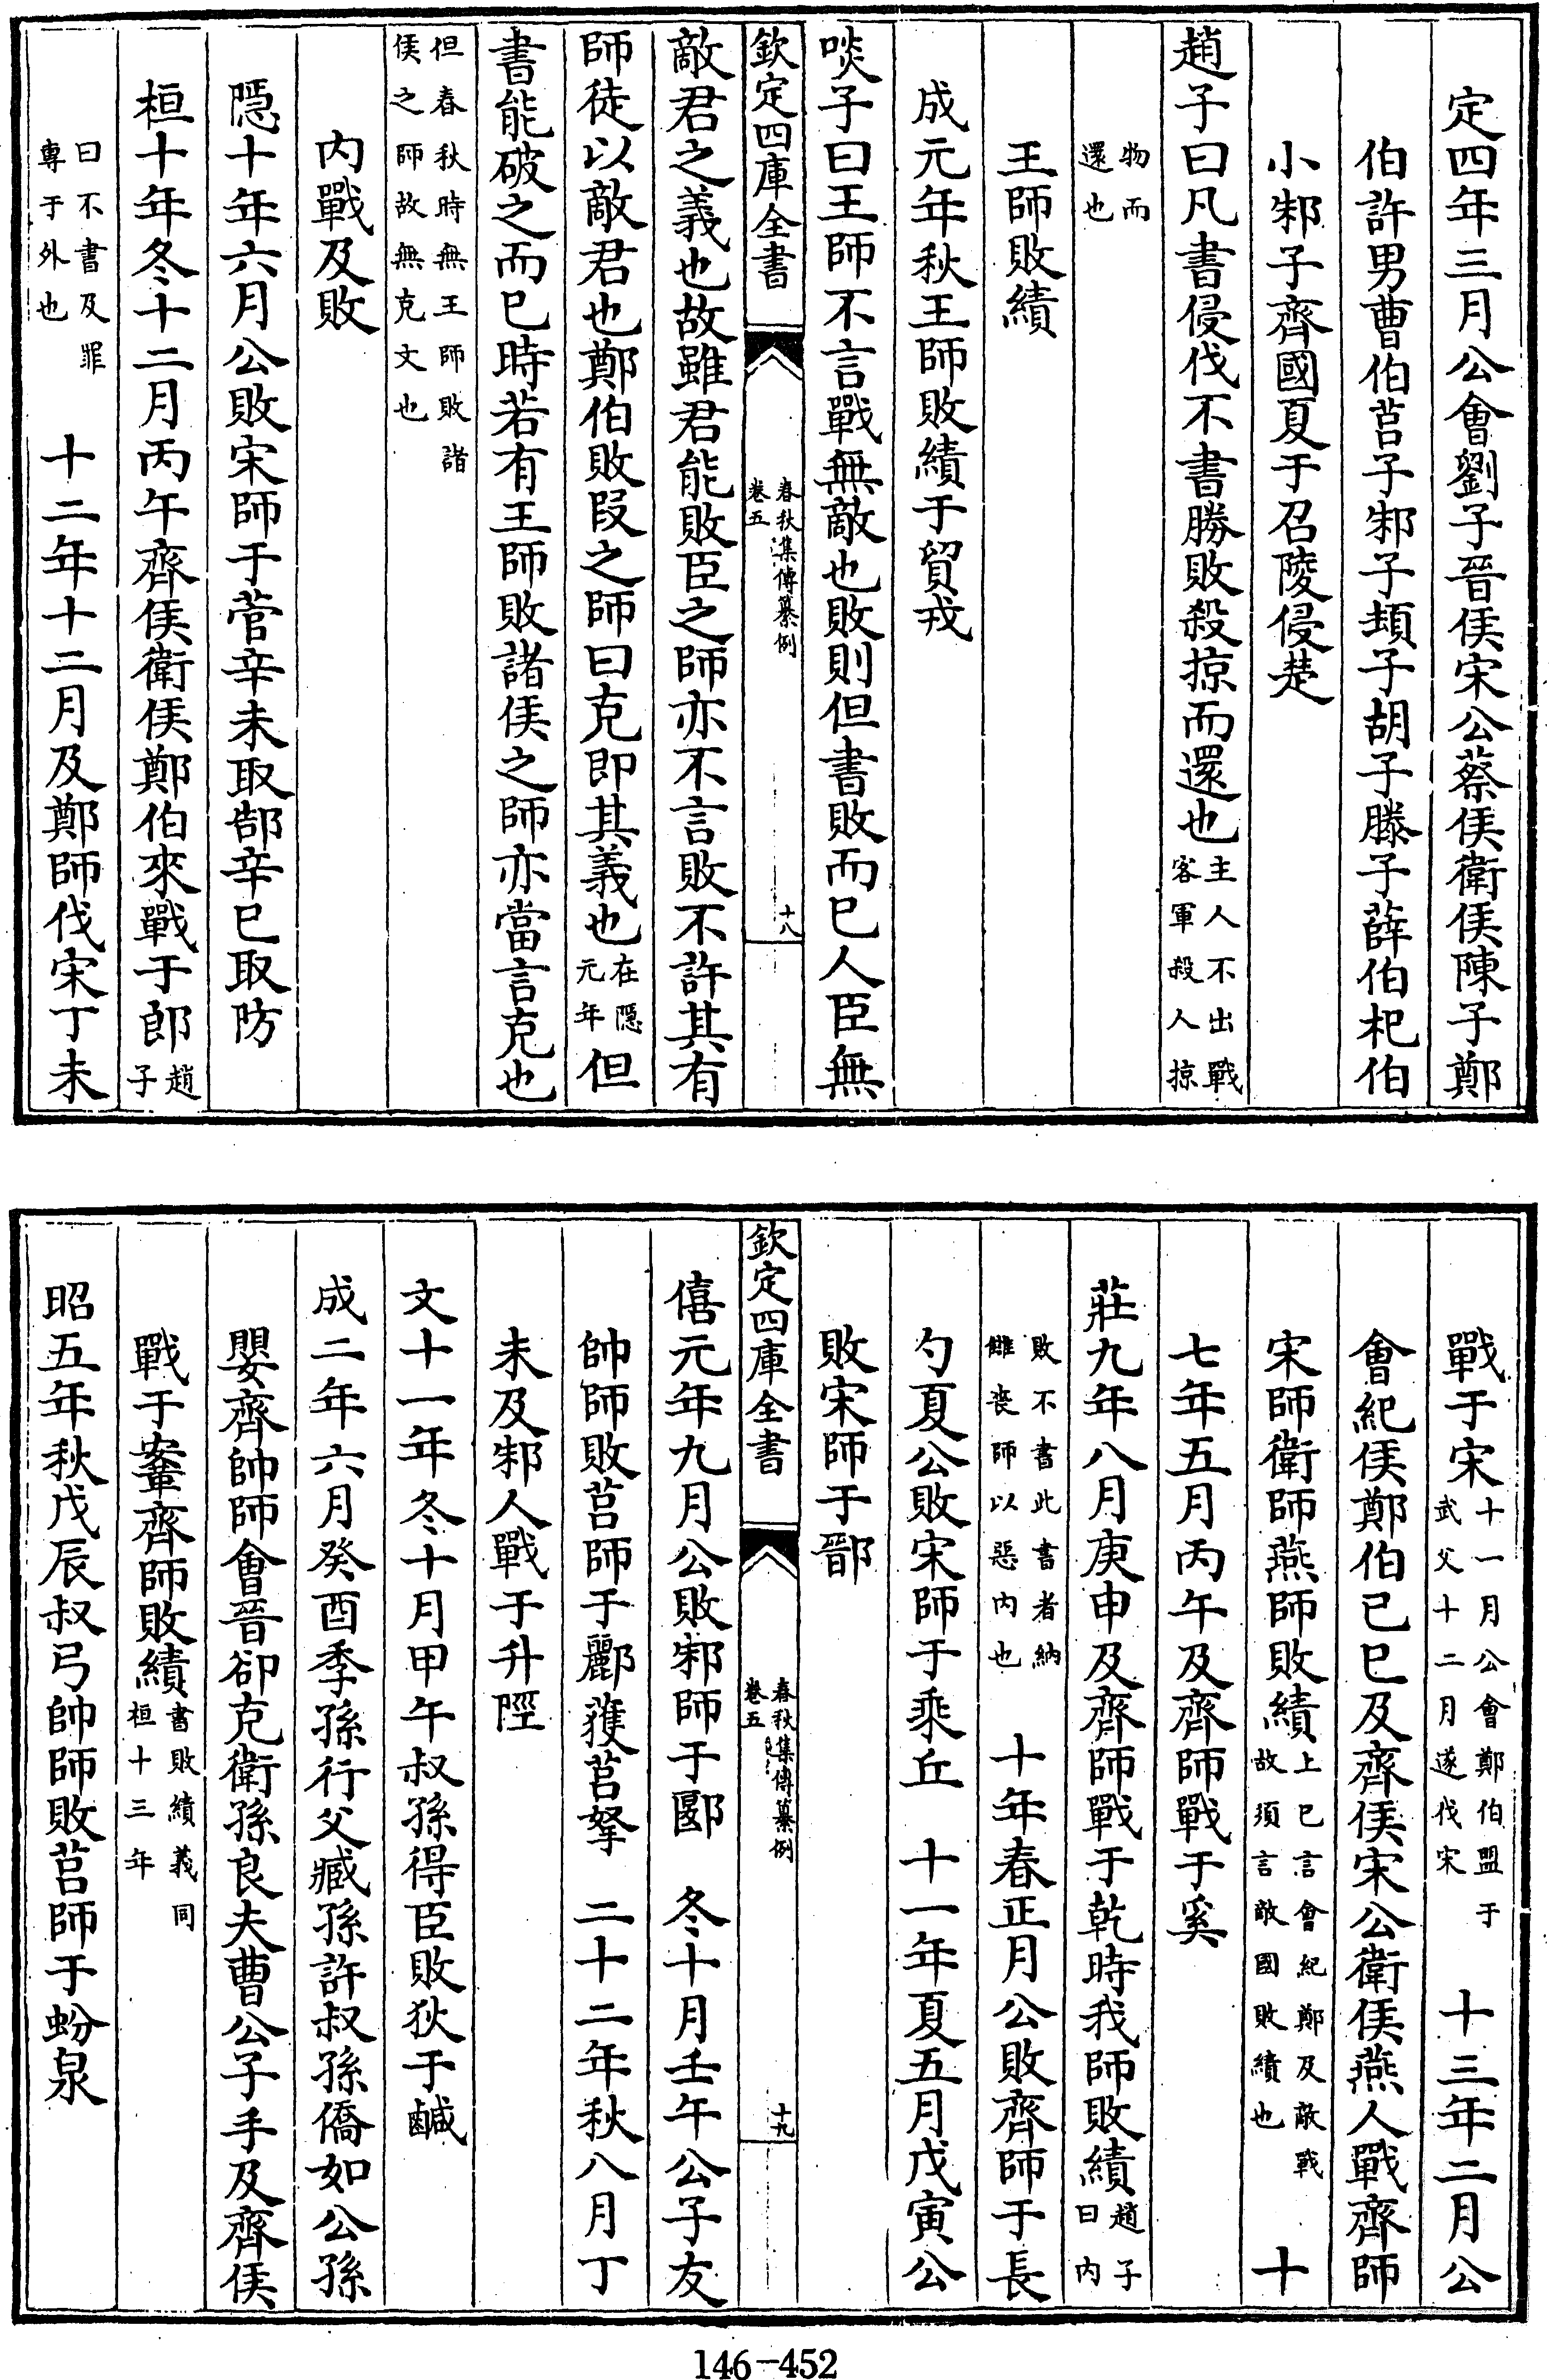 定四年三月公會劉子晉侯宋公蔡侯衛侯陳子鄭
伯許男曹伯莒子邾子頓子胡子滕子薛伯杞伯
小邾子齊國夏于召陵侵楚
趙子曰凡書侵伐不書勝敗殺掠而還也主人不出戰客軍殺人掠
物而還也
王師敗績
成元年秋王師敗績于貿戎
啖子曰王師不言戰無敵也敗則但書敗而已人臣無
欽定四庫全書
春秋集傳纂例
卷五
十八
敵君之義也故雖君能敗臣之師亦不言敗不許其有
師徒以敵君也鄭伯敗段之師曰克即其義也在隠元年但
書能破之而已時若有王師敗諸侯之師亦當言克也
但春秋時無王師敗諸侯之師故無克文也
内戰及敗
隠十年六月公敗宋師于菅辛未取郜辛巳取防
桓十年冬十二月丙午齊侯衛侯鄭伯來戰于郎趙子
曰不書及罪專于外也 十二年十二月及鄭師伐宋丁未
戰于宋十一月公會鄭伯盟于武父十二月遂伐宋 十三年二月公
會紀侯鄭伯已巳及齊侯宋公衛侯燕人戰齊師
宋師衛師燕師敗績上已言會紀鄭及敵戰故須言敵國敗績也 十
七年五月丙午及齊師戰于奚
莊九年八月庚申及齊師戰于乾時我師敗績趙子曰内
敗不書此書者納讎喪師以惡内也 十年春正月公敗齊師于長
勺夏公敗宋師于乘丘 十一年夏五月戊寅公
敗宋師于鄑
欽定四庫全書
春秋集傳纂例
卷五
十九
僖元年九月公敗邾師于郾 冬十月壬午公子友
帥師敗莒師于酈獲莒挐 二十二年秋八月丁
未及邾人戰于升陘
文十一年冬十月甲午叔孫得臣敗狄于鹹
成二年六月癸酉季孫行父臧孫許叔孫僑如公孫
嬰齊帥師會晉郤克衛孫良夫曹公子手及齊侯
戰于鞌齊師敗績書敗績義同桓十三年
昭五年秋戊辰叔弓帥師敗莒師于蚡泉
146-452